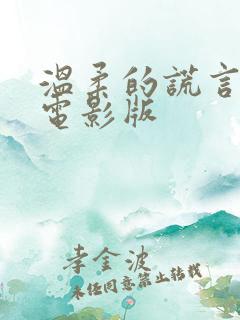 溫柔的謊言
電影版
李金波
未經同意禁止轉載